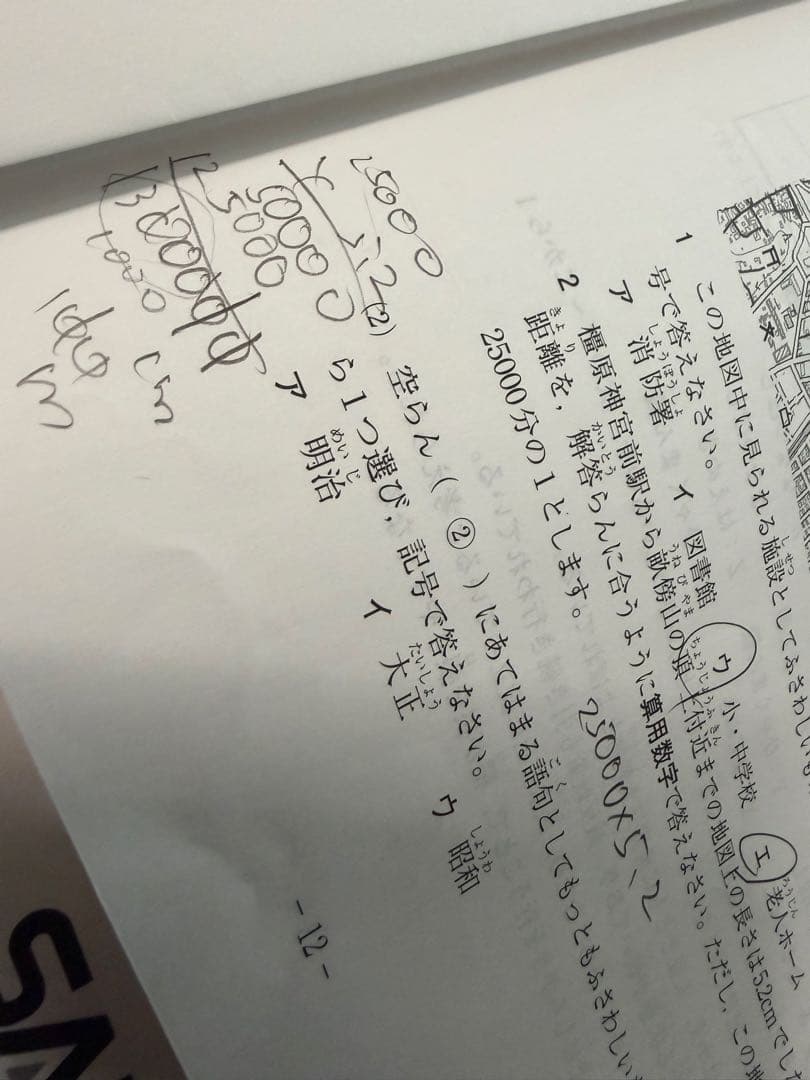 1 この地図中に見られる施設としてふさわしい
号で答えなさい。
ア 消防署 イ 図書館 ウ 小・中学校 エ 老人ホーム
2 橿原神宮前駅から畝傍山の頂上付近までの地図上の長さは5.2cmでし
距離を，解答らんに合うように算用数字で答えなさい。ただし，この地
25000分の1とします。
25000×5、2
(2) 空らん（ ② ）にあてはまる語句としてもっともふさわしい
ら1つ選び，記号で答えなさい。
ア 明治 イ 大正 ウ 昭和
25000
5、2
50000
cm
m
- 12 -